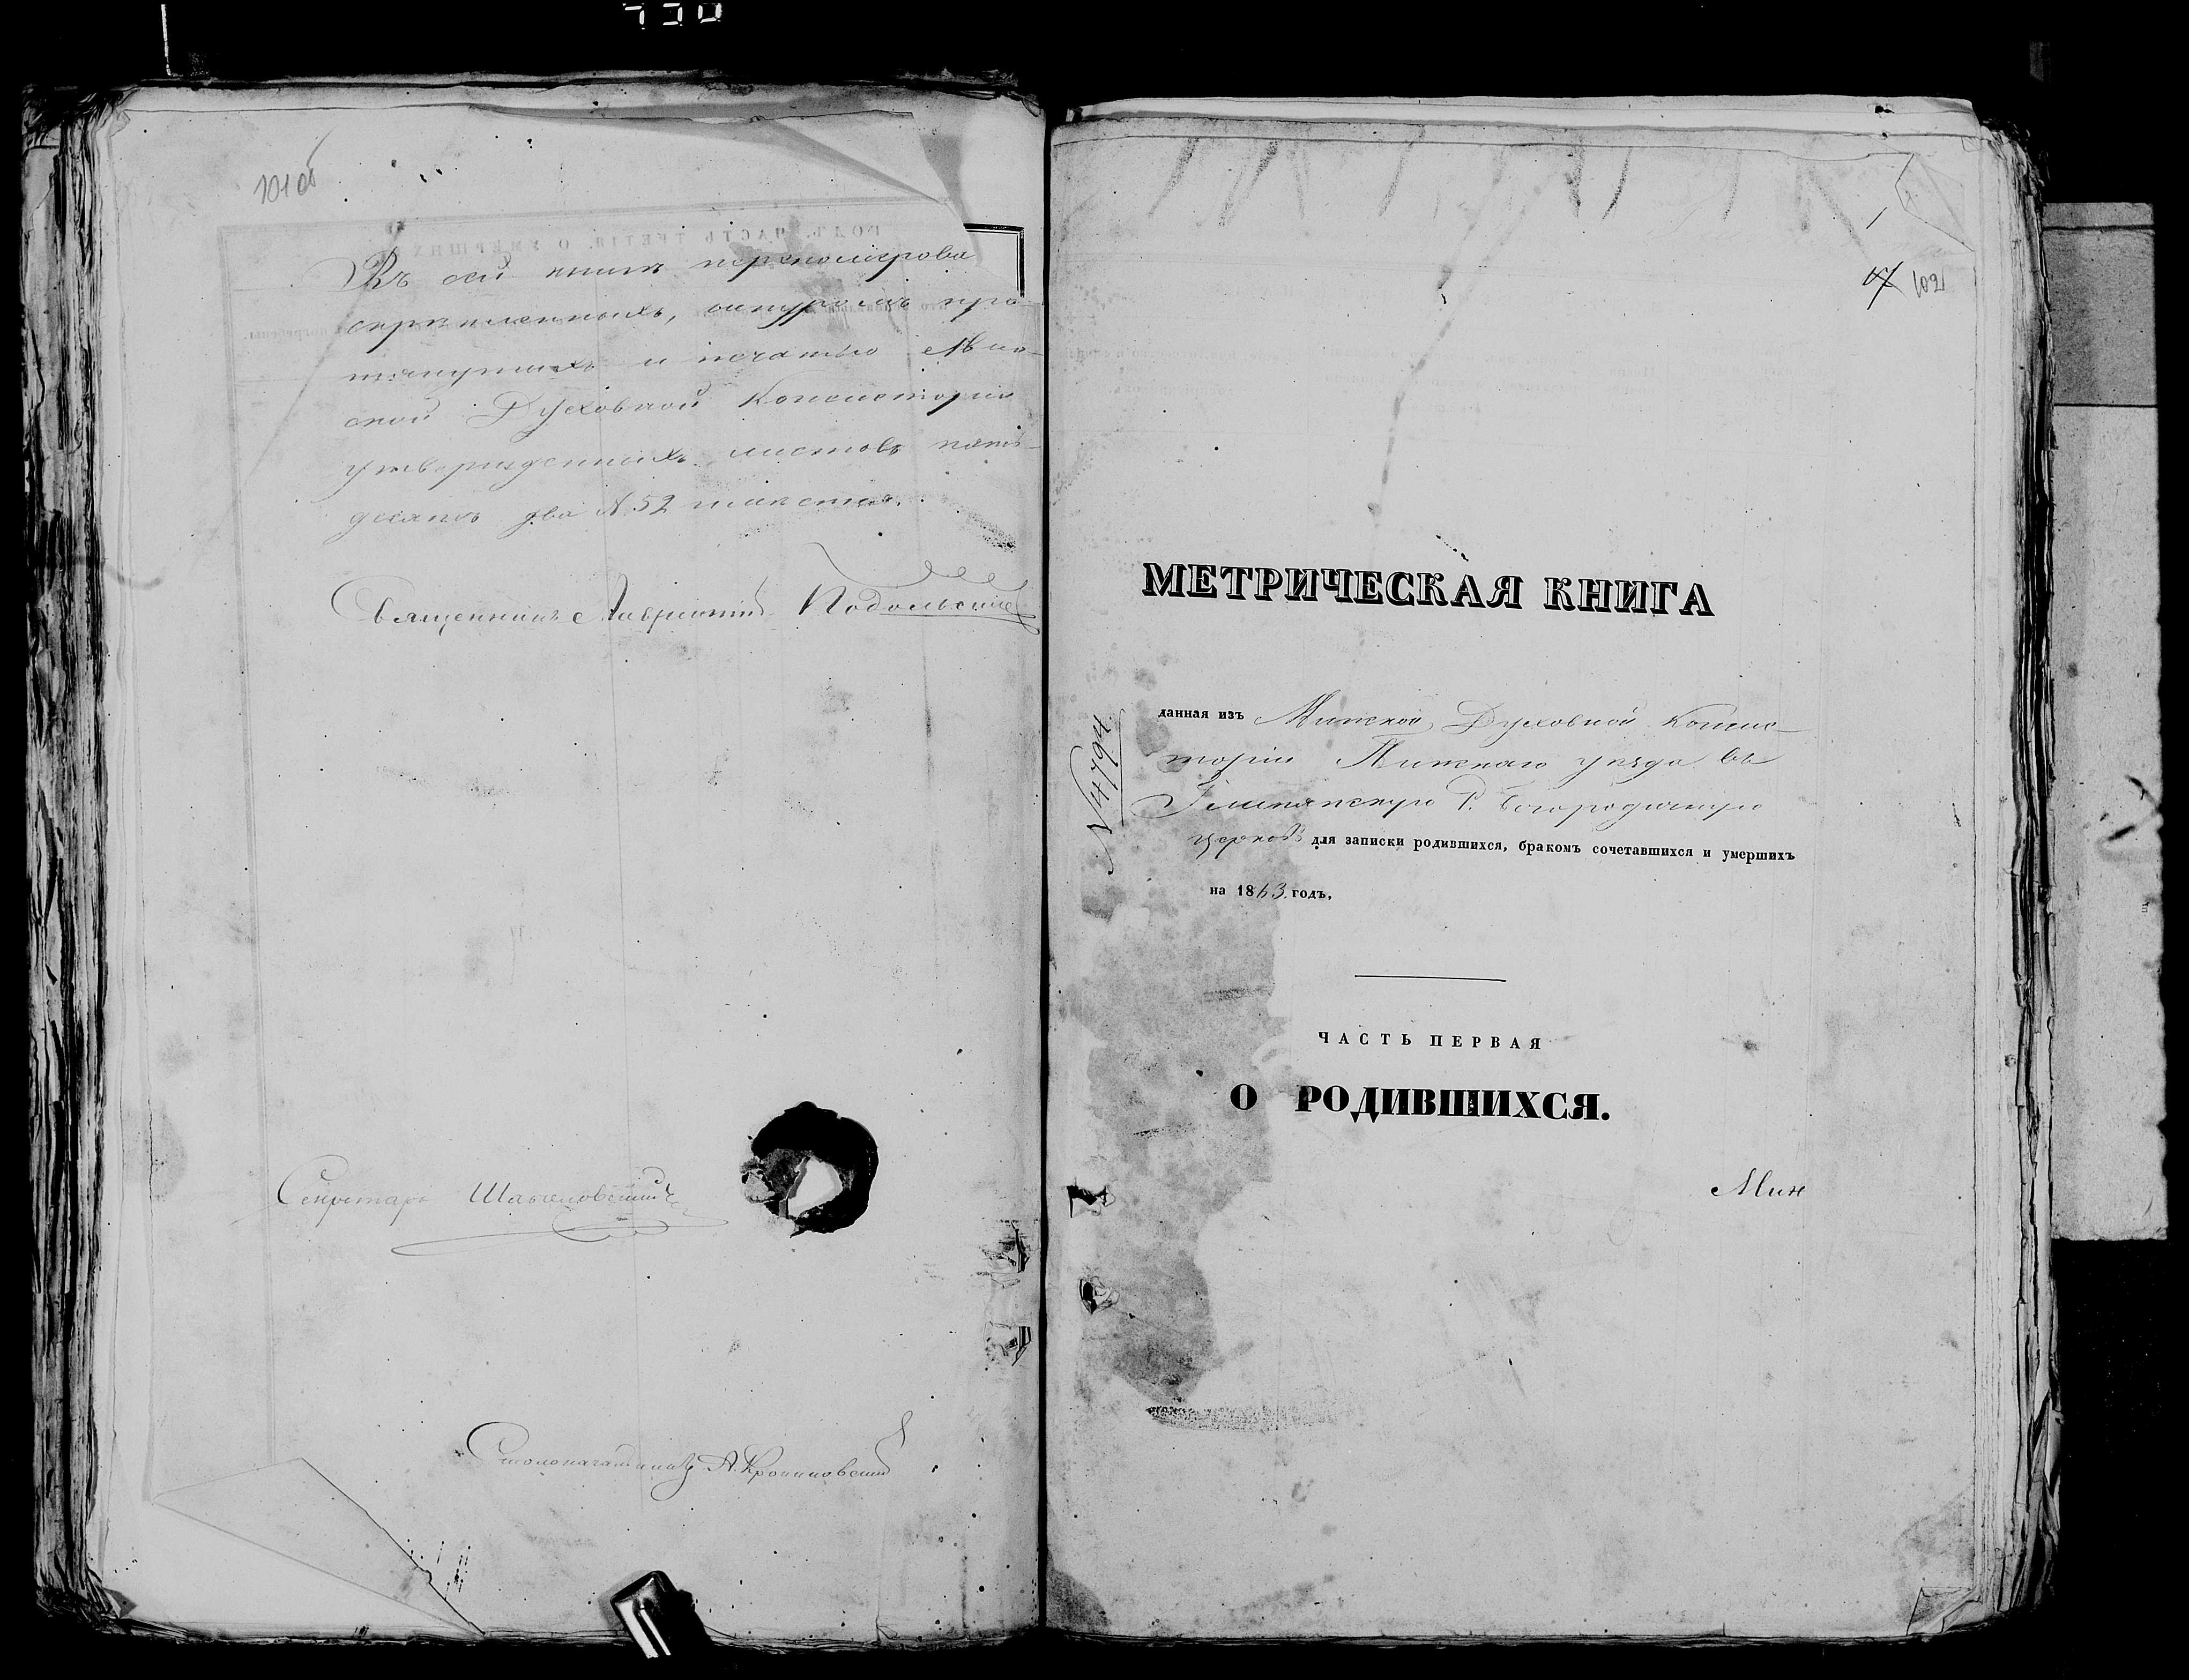 101 об
Въ сей книгѣ перенумерова
скрѣпленныхъ, шнуромъ про-
тянутыхъ и печатью Мин-
ской Духовной Консисторіи
утвержденныхъ листовъ пять-
десятъ два №. 52
Священникъ Лаврентій Подольскій
Секретарь
Столоначальникъ А.
1
102
МЕТРИЧЕСКАЯ КНИГА
№4794
данная изъ Минской Духовной Консис-
торіи Пинскаго уѣзда въ
Р. Богородичную
церковь для записки родившихся, бракомъ сочетавшихся и умершихъ
на 1863 годъ,
ЧАСТЬ ПЕРВАЯ
О РОДИВШИХСЯ.
Мин